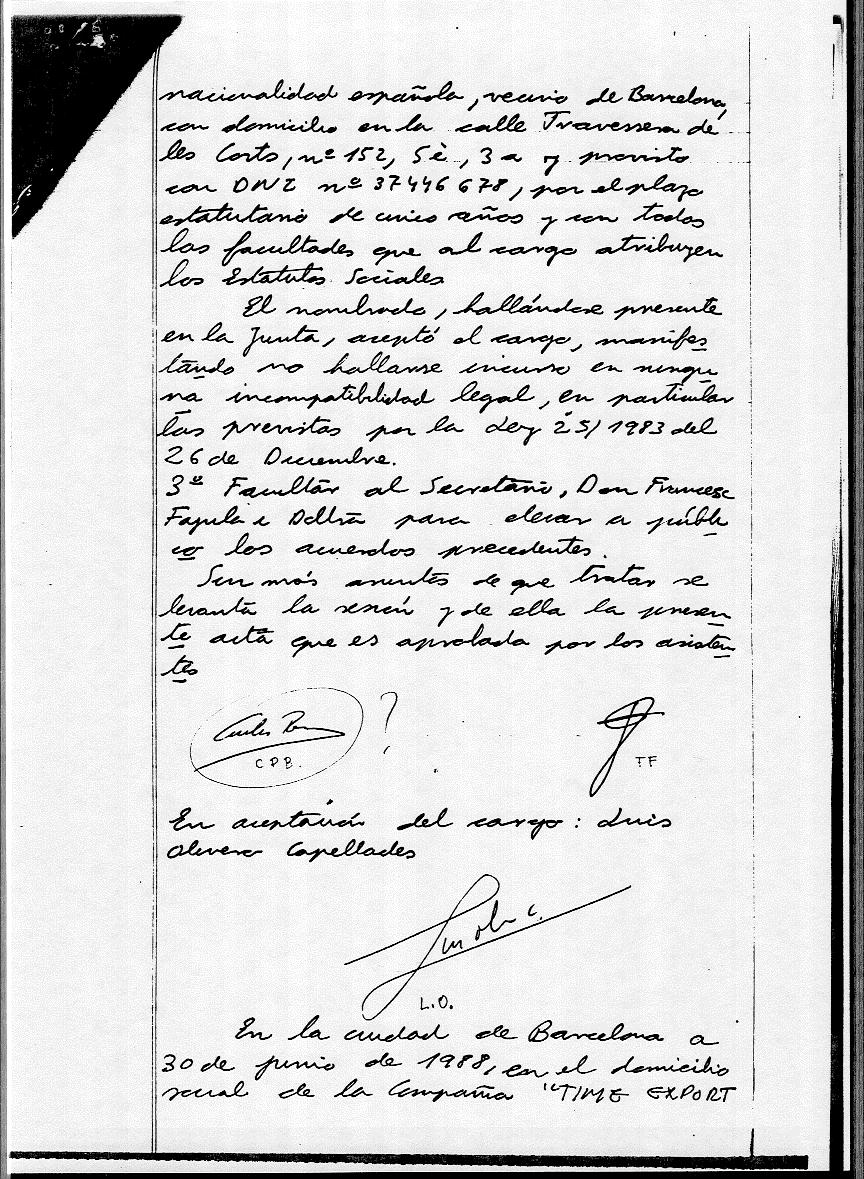 nacionalidad española, vecino de Barcelona,
con domicilio en la calle Travessera de
les Corts, nº 152, 5è, 3a y provisto
con DNI nº 37446678, por el plazo
estatutario de cinco años y con todas
las facultades que al cargo atribuyen
los Estatutos Sociales
El nombrado, hallándose presente
en la Junta, aceptó el cargo, manifes
tando no hallarse incurso en ningu
na incompatibilidad legal, en particular
las previstas por la Ley 25/1983 del
26 de Diciembre.
3º Facultar al Secretario, Don Francesc
Fajula i Doltrà para elevar a públi
co los acuerdos precedentes.
Sin más asuntos de que tratar se
levanta la sesión y de ella la presen
te acta que es aprobada por los asisten
tes
?
C P B.
TF
En aceptación del cargo: Luis
Olivero Capellades
L.O.
En la ciudad de Barcelona a
30 de junio de 1988, en el domicilio
social de la Compañia "TIME EXPORT